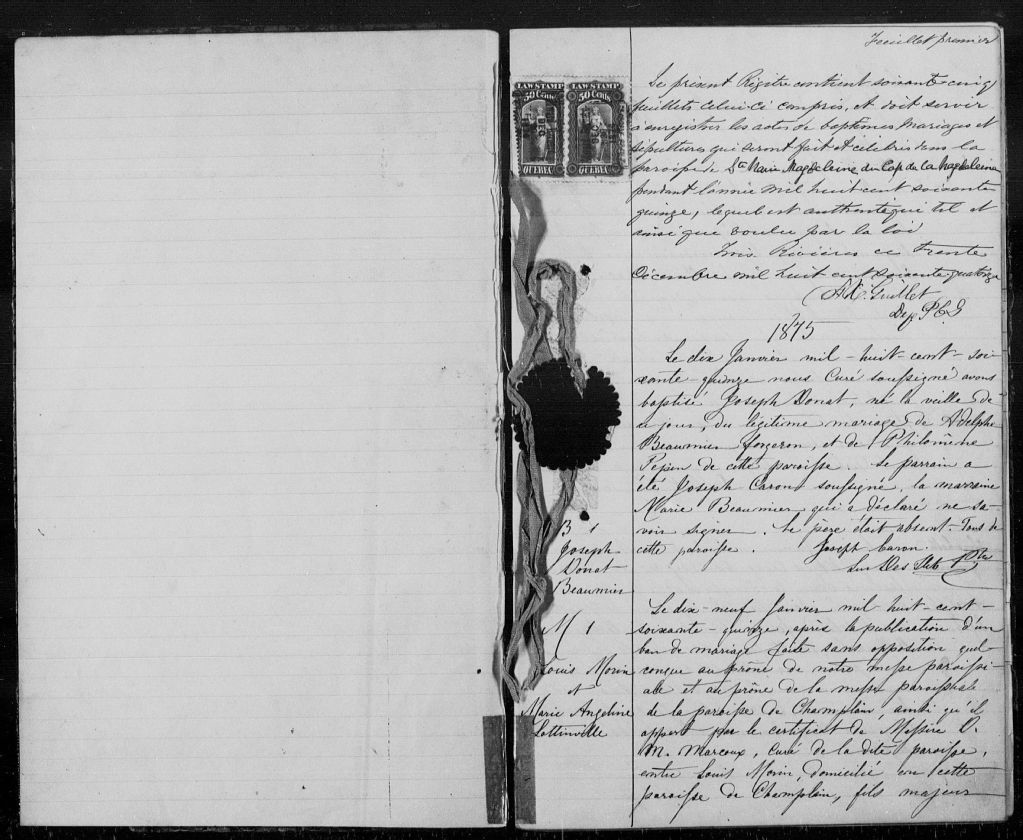 Feuillet premier
LAW STAMP LAW STAMP
50 Cents 50 Cents
QUEBEC QUEBEC
Le présent Régitre contient soixante-cinq
feuillets celui-ci compris, et doit servir
à enregistrer les actes de baptêmes mariages et
sépultures qui seront fait et célébrés dans la
paroisse de Ste Marie Magdeleine du Cap de la Magdeleine
pendant l'année mil huit cent soixante
quinze, lequel est authentiqué tel et
ainsi que voulu par la loi
Trois Rivières ce trente
Décembre mil huit cent soixante quatorze
Guillet
Dep P C S
1875
Le dix Janvier mil-huit-cent-soi-
xante-quinze nous Curé soussigné avons
baptisé Joseph Donat, né la veille de
ce jour, du légitime mariage de Adelphe
Beaumier forgeron, et de Philomène
Pepin de cette paroisse. Le parrain a
été Joseph Caron soussigné, la marraine
Marie Beaumier qui a déclaré ne sa-
voir signer. Le père était absent. Tous de
cette paroisse. Joseph Caron.
Ptre
B 1
Joseph
Donat
Beaumier
Le dix-neuf Janvier mil-huit-cent-
soixante-quinze, après la publication d'un
ban de mariage faite sans opposition quel-
conque au prône de notre messe paroissi-
ale et au prône de la messe paroissiale
de la paroisse de Champlain, ainsi qu'il
appert par le certificat de Messire O.
M. Marcoux, curé de la dite paroisse,
entre Louis Morin, domicilié en cette
paroisse de Champlain, fils majeur
M 1
Louis Morin
et
Marie Angeline
Lottinville